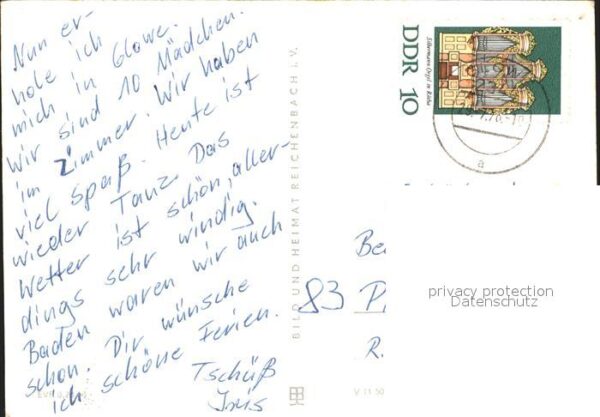 Nun er-
hole ich
mich in Glowe.
Wir sind 10 Mädchen
im Zimmer. Wir haben
viel Spaß. Heute ist
wieder Tanz. Das
Wetter ist schön, aller-
dings sehr windig.
Baden waren wir auch
schon. Dir wünsche
ich schöne Ferien.
Tschüß
Iris
BILD UND HEIMAT REICHENBACH i. V.
V 11 50
Silbermann-Orgel in Rötha
DDR 10
a
Be
83 P
R.
privacy protection
Datenschutz